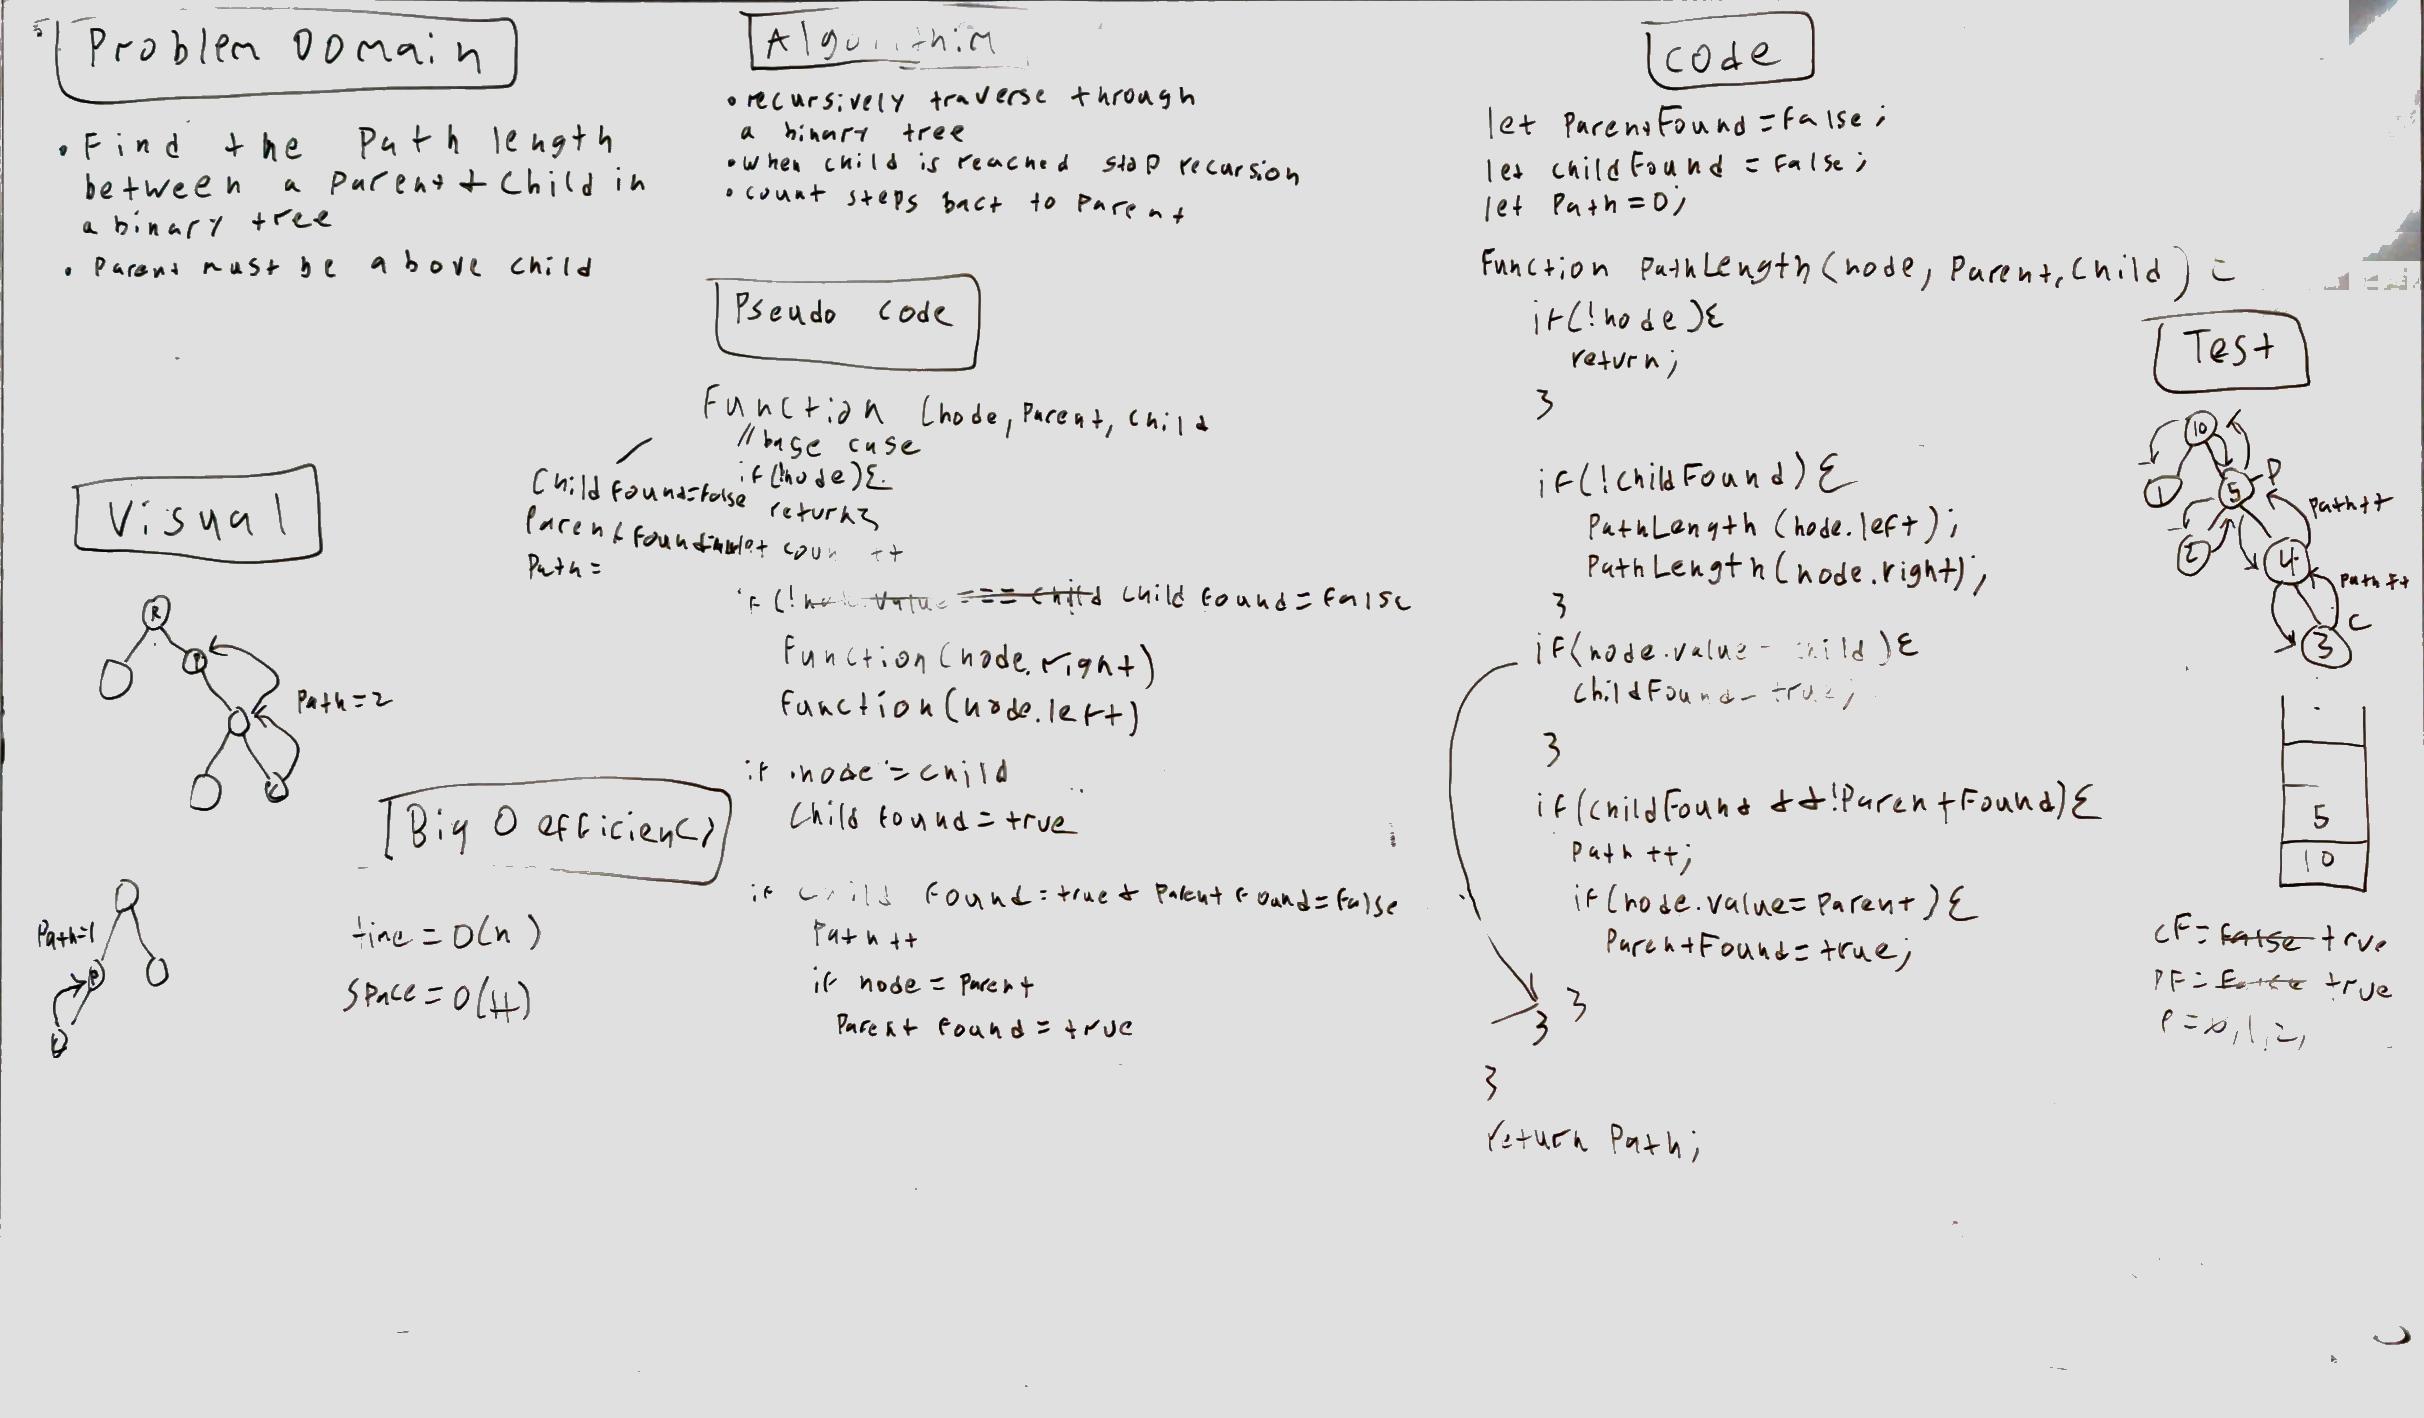 Problem Domain
• Find the Path length
between a Parent + Child in
a binary tree
• Parent must be above child
Visual
R
P
Path=2
C
Path=1
P
C
Big O efficiency
time = O(n)
space = O(H)
Algorithim
• recursively traverse through
a binary tree
• when child is reached stop recursion
• count steps bact to Parent
Pseudo code
Function (node, Parent, child
// base case
if(!node){
return}
Child found=false
Parent found
Path =
++
if (! child found = false
function(node.right)
function(node.left)
if node = child
Child found = true
if child found = true + Parent found = false
Path ++
if node = Parent
Parent found = true
code
let ParentFound = false;
let childFound = false;
let Path = 0;
Function PathLength(node, Parent, Child)
if(!node){
return;
}
if(!childFound){
PathLength(node.left);
PathLength(node.right);
}
if(node.value = child){
childFound = true;
}
if(childFound ++!ParentFound){
Path ++;
if(node.value= Parent){
ParentFound = true;
}
}
}
return Path;
Test
10
1
5
P
Path++
2
4
Path++
C
3
5
10
CF = false true
PF = false true
P = 0, 1, 2,